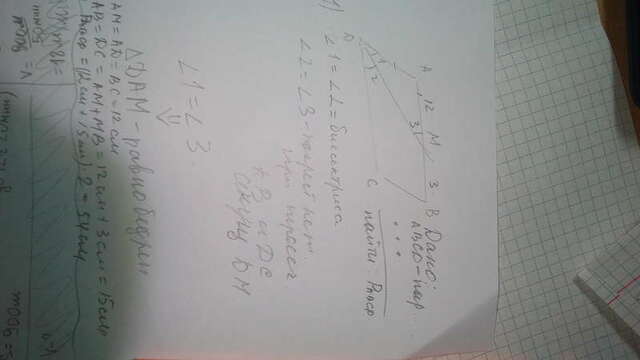 Дано:
ABCD - пар...
найти - Pпар
A 12 M 3 B
3
1
2
D
C
1) ∠1 = ∠2 = биссектриса
∠2 = ∠3 - накрест леж.
при
AB и DC
секущ DM
∠1 = ∠3.
⇓
ΔDAM - равнобедрен
AM = AD = BC = 12 см
AB = DC = AM + MB = 12 см + 3 см = 15 см
Pпар = (12 см + 15 см) · 2 = 54 см